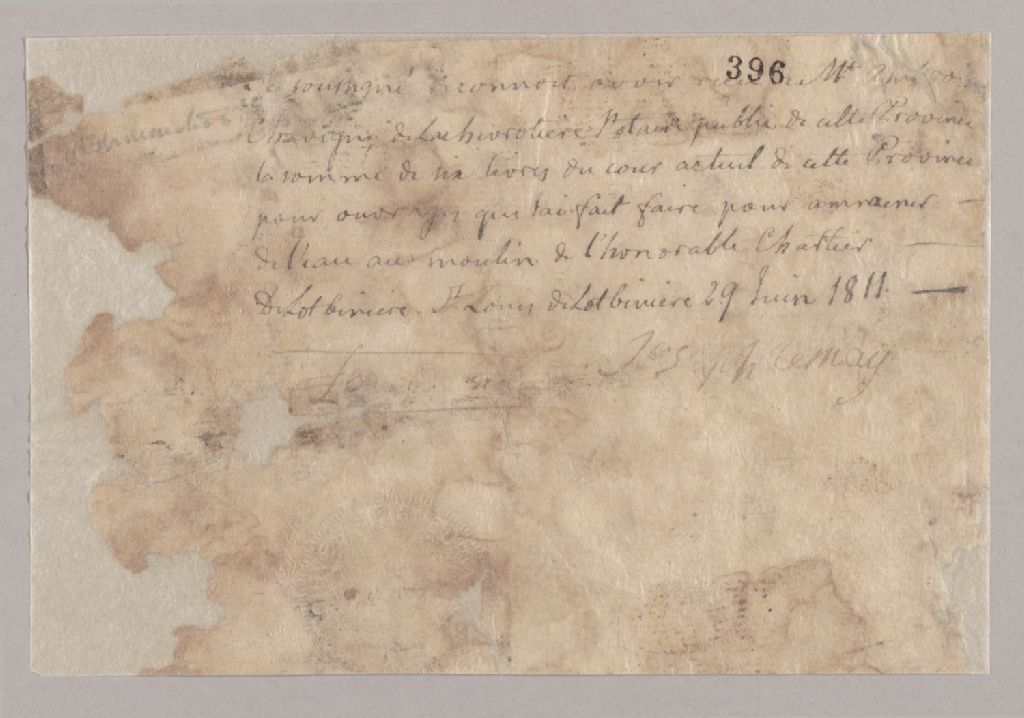 396
Je sousigné reconnois avoir reçu de Mr
Chavigny de Lachevrotiere Notaire public de cette Province
la somme de six livres du cour actuel de cette Province
pour ouvrages qui j'ai fait faire pour ammener
de l'eau au moulin de l'honorable Chartier
De Lotbiniere. St Louis de Lotbiniere 29 Juin 1811
Joseph Lemay